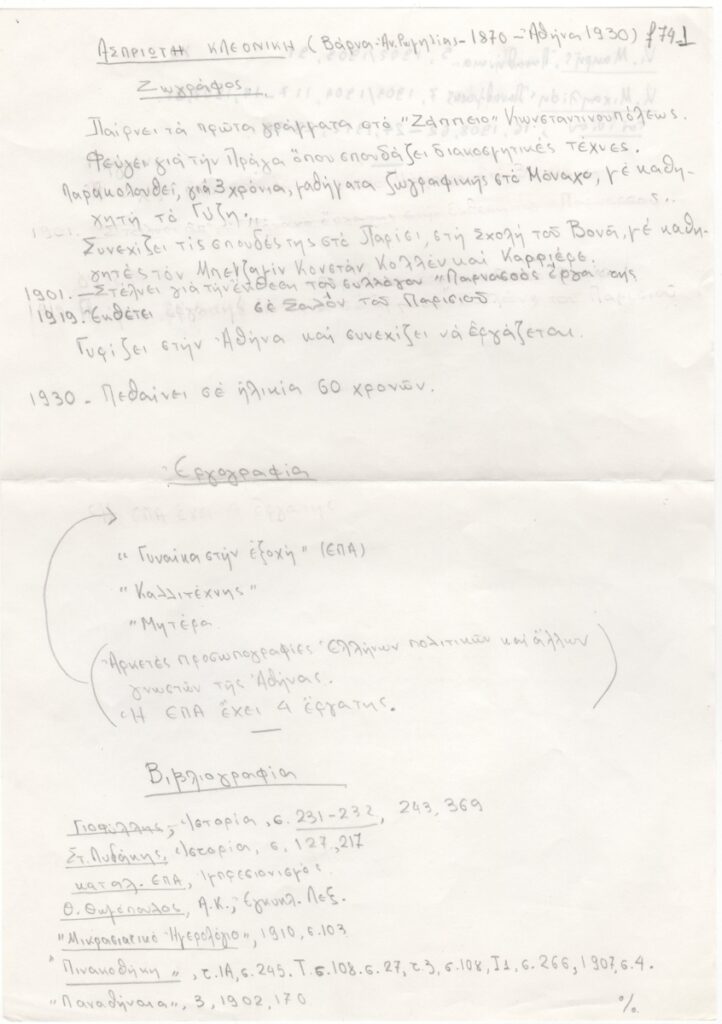 ΑΣΠΡΙΩΤΗ ΚΛΕΟΝΙΚΗ (Βάρνα-Αν.Ρωμηλίας-1870-Αθήνα 1930) f74-1
Ζωγράφος
Παίρνει τά πρῶτα γράμματα στό "Ζάππειο" Κωνσταντινουπόλεως.
Φεύγει γιά τήν Πράγα ὅπου σπουδάζει διακοσμητικές τέχνες.
Παρακολουθεῖ, γιά 3 χρόνια, μαθήματα ζωγραφικῆς στό Μόναχο, μέ καθη-
γητή τό Γύζη.
Συνεχίζει τίς σπουδές της στό Παρίσι, στή Σχολή τοῦ Βονᾶ, μέ καθη-
γητές τόν Μπενζαμίν Κονστάν Κολλέν καί Καρριέρε.
1901. - Στέλνει γιά τήν ἔκθεση τοῦ συλλόγου "Παρνασσός ἔργα της
1919. Ἐκθέτει σέ Σαλόν τοῦ Παρισιοῦ
Γυρίζει στήν Ἀθήνα καί συνεχίζει νά ἐργάζεται.
1930 - Πεθαίνει σέ ἡλικία 60 χρονῶν.
Ἐργογραφία
"Γυναίκα στήν ἐξοχή" (ΕΠΑ)
"Καλλιτέχνης"
"Μητέρα
(Ἀρκετές προσωπογραφίες Ἑλλήνων πολιτικῶν καί ἄλλων
γνωστῶν τῆς Ἀθήνας.
Ἡ ΕΠΑ ἔχει 4 ἔργα της.)
Βιβλιογραφία
Ἱστορία, σ. 231-232, 243, 369
Στ. Λυδάκης, Ἱστορία, σ. 127, 217
καταλ. ΕΠΑ, Ἰμπρεσιονισμός
Θ. Θωμόπουλος, Α.Κ., Ἐγκυκλ. Λεξ.
"Μικρασιατικό Ἡμερολόγιο", 1910, σ.103
"Πινακοθήκη", τ.ΙΑ, σ.245. Τ.σ.108.σ.27, τ.3, σ.108, Ι1, σ.266, 1907, σ.4.
"Παναθήναια", 3, 1902, 170
%